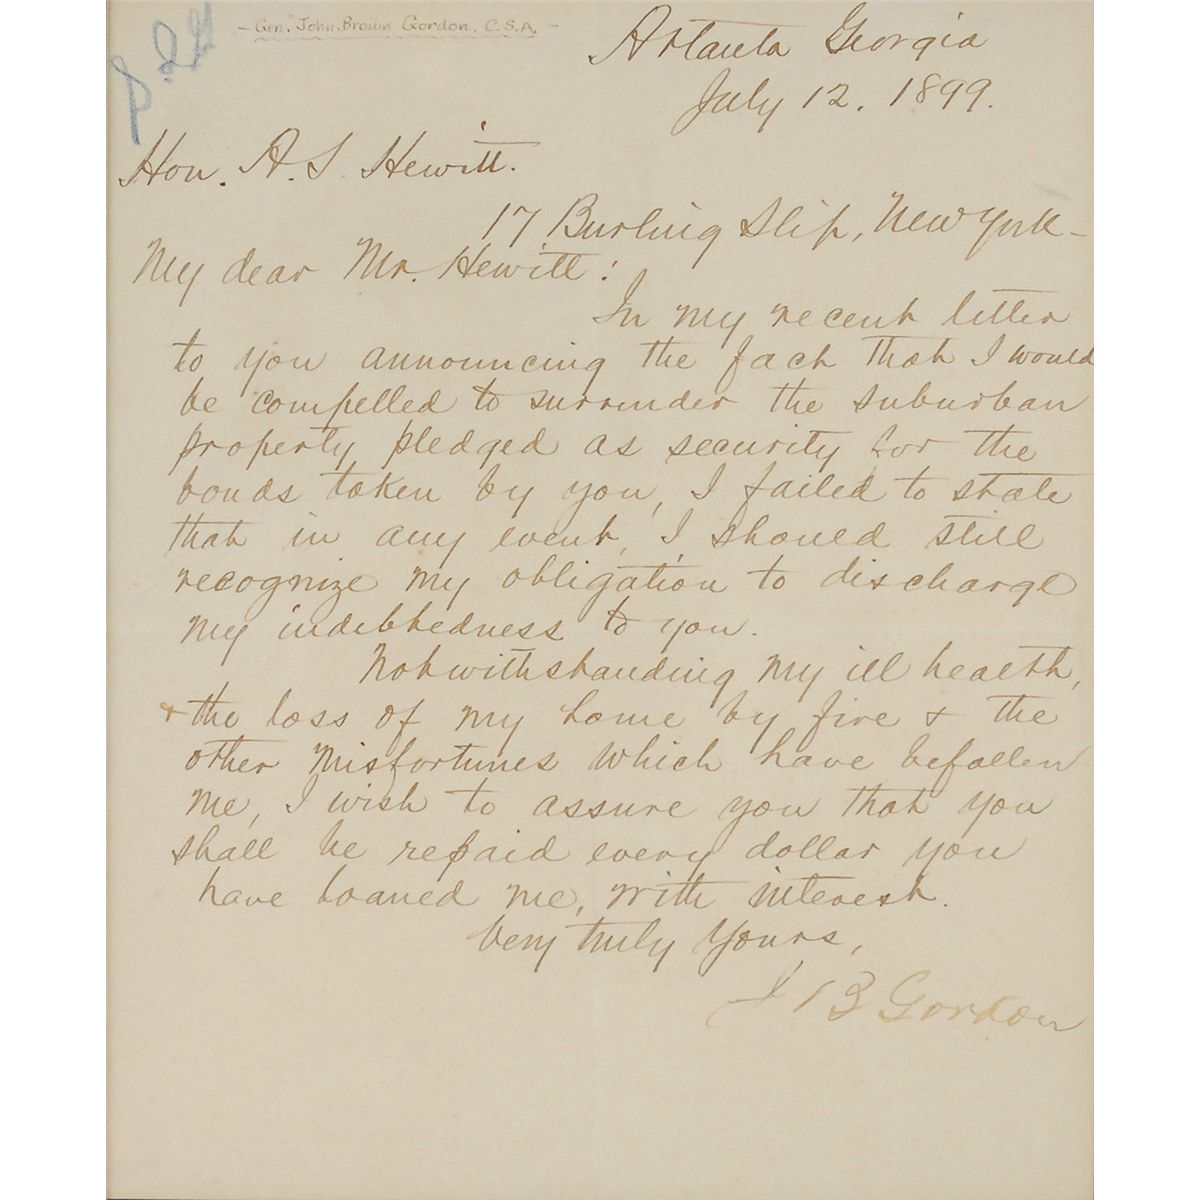 - Gen. John Brown Gordon. C.S.A. -
Atlanta Georgia
July 12. 1899.
Hon. A. S. Hewitt.
17 Burling Slip, New York -
My dear Mr. Hewitt:
In my recent letter
to you announcing the fact that I would
be compelled to surrender the suburban
property pledged as security for the
bonds taken by you, I failed to state
that in any event, I should still
recognize my obligation to discharge
my indebtedness to you.
Notwithstanding my ill health,
& the loss of my home by fire & the
other misfortunes which have befallen
me, I wish to assure you that you
shall be repaid every dollar you
have loaned me, with interest.
Very truly yours,
J B Gordon